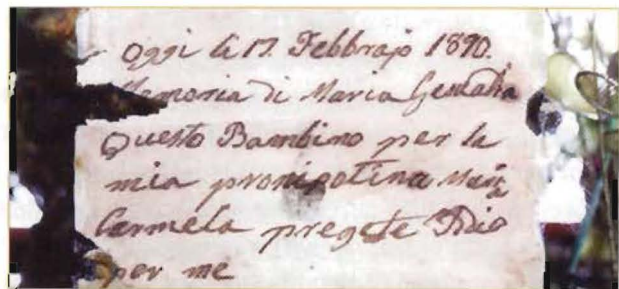 Oggi li 17. Febbrajo 1890.
Memoria di Maria
Questo Bambino per la
mia pronipotina Maria
Carmela pregate Iddio
per me